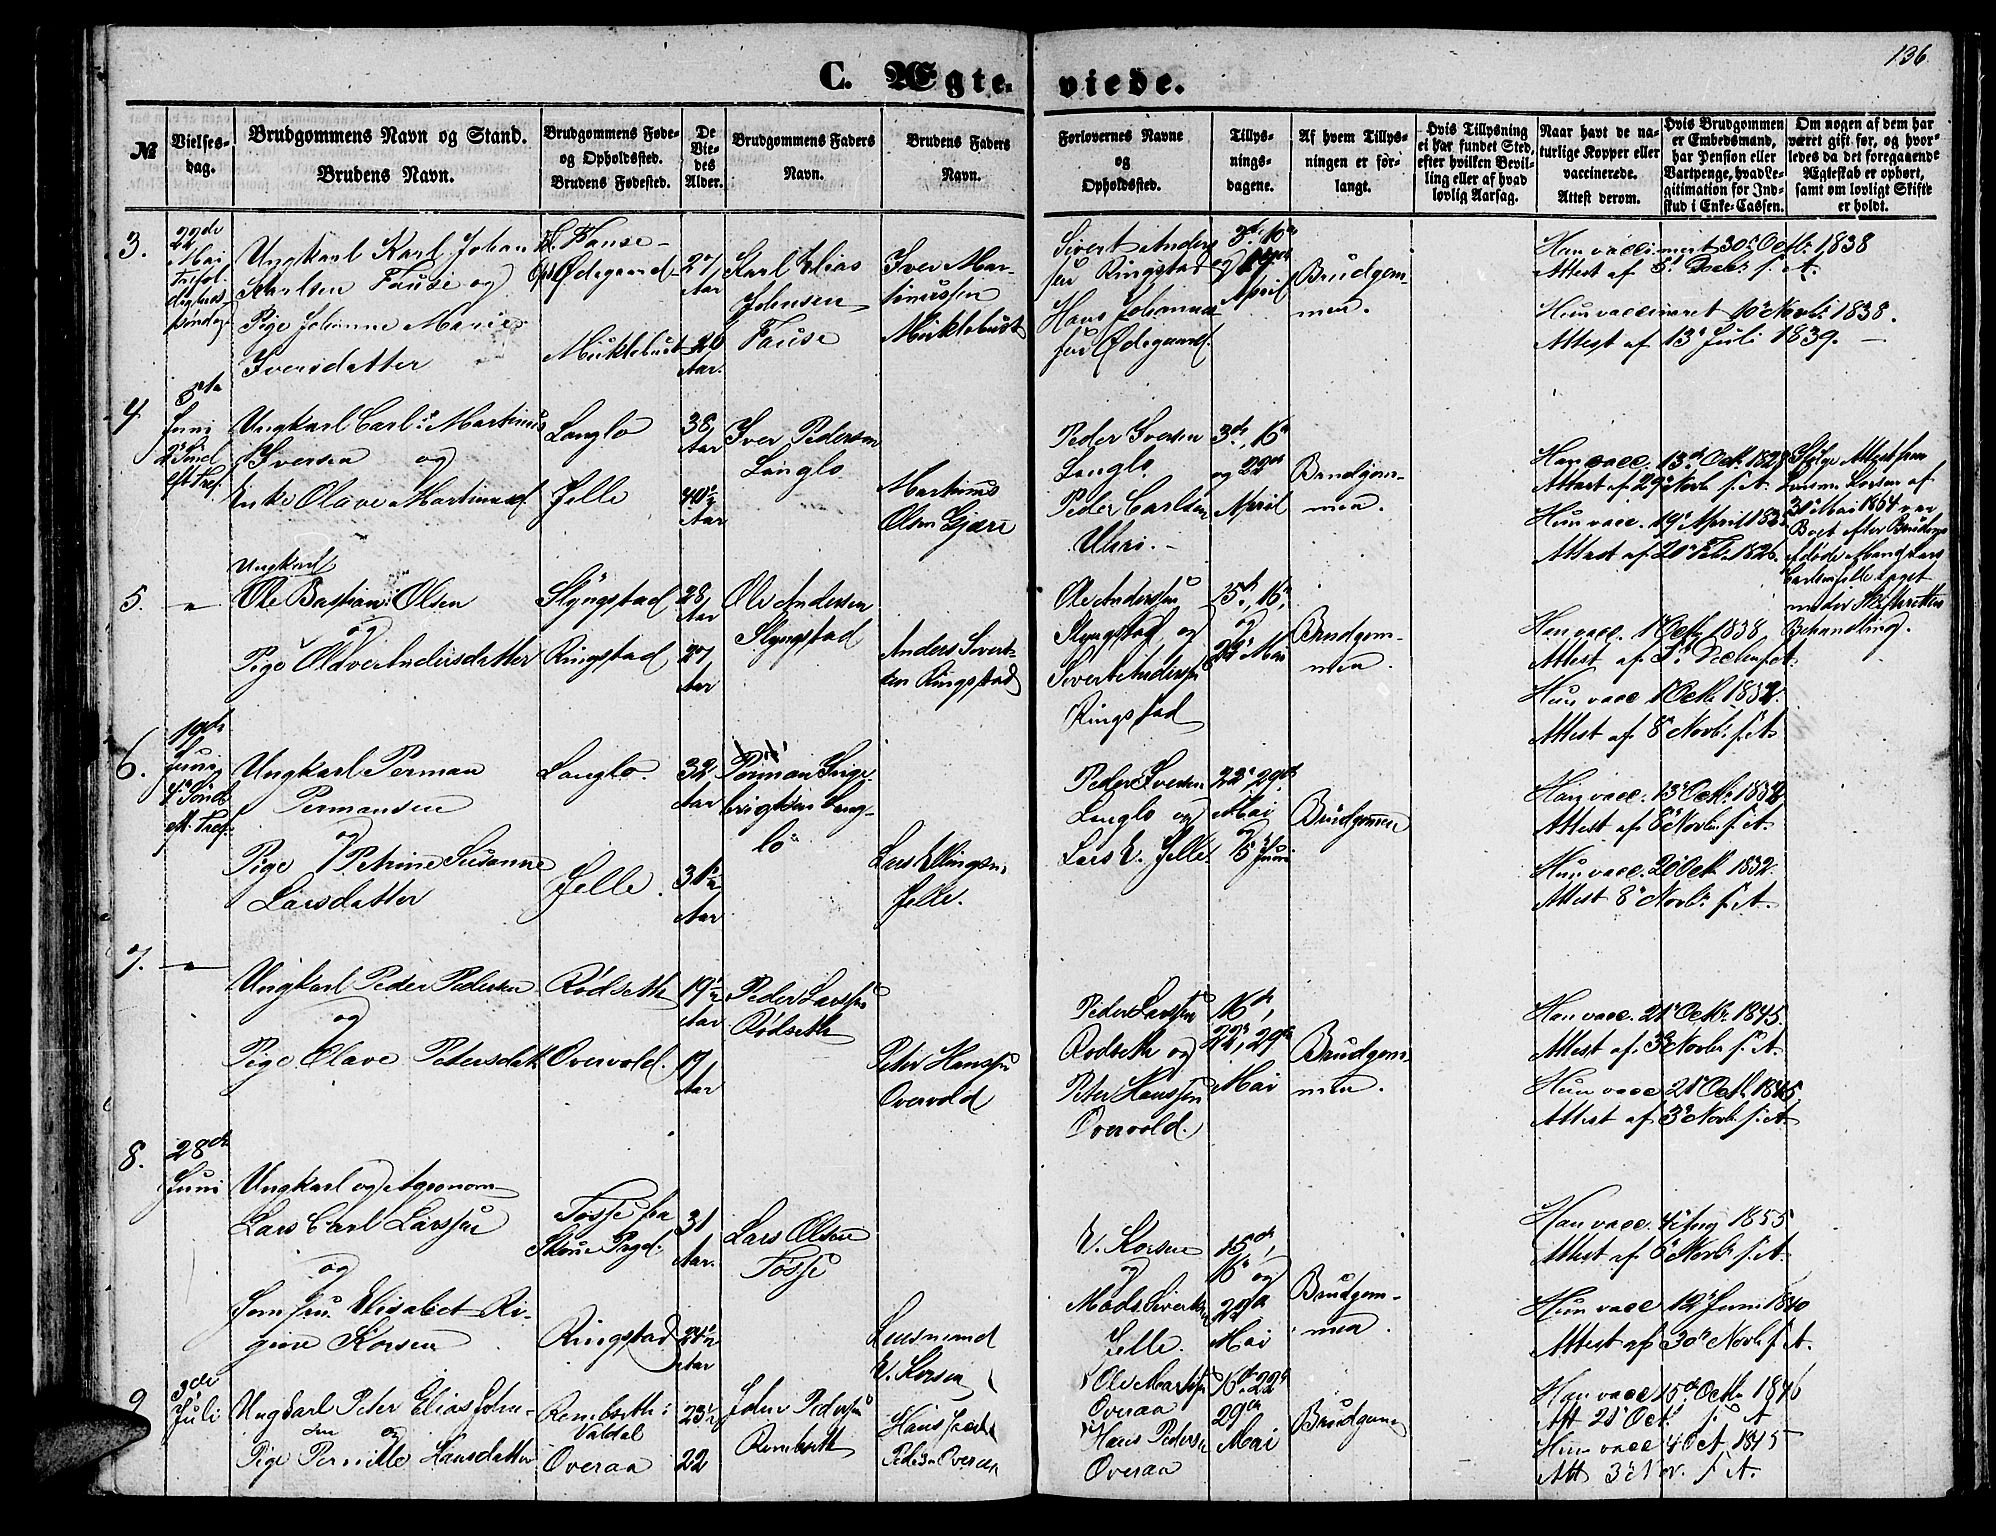 136
C. Ægteviede.
№
Vielsesdag.
Brudgommens Navn og Stand.
Brudens Navn.
Brudgommens Føde-
og Opholdssted.
Brudens Fødested.
De
Vie-
des
Alder.
Brudgommens Faders
Navn.
Brudens Faders
Navn.
Forlovernes Navne
og
Opholdssted.
Tillys-
nings-
dagene.
Af hvem Tillys-
ningen er for-
langt.
Hvis Tillysning
ei har fundet Sted,
efter hvilken Bevil-
ling eller af hvad
lovlig Aarsag.
Naar havt de na-
turlige Kopper eller
vaccinerede.
Attest derom.
Hvis Brudgommen
er Embedsmand,
har Pension eller
Vartpenge, hvad Le-
gitimation for Ind-
skud i Enke-Cassen.
Om nogen af dem har
været gift før, og hvor-
ledes da det foregaaende
Ægteskab er ophørt,
samt om lovligt Skifte
er holdt.
3.
22de
Mai
Ungkarl Karl Johan
Karlsen Fause og
Pige Johanne Marie
Iversdatter
Fause
Ødegaard
Micklebust
27
Aar
20
Aar
Karl Elias
Johnsen
Fause
Iver Mar-
tinussen
Micklebust
Sivert Anders
sen Ringstad
Hans Johannes
sen Ødegaard.
April
Brudgom-
men.
Han vaccineret 30 Octb. 1838
Attest af 5 Decbr. s. A.
Hun vaccineret 10 Novbr. 1838.
Attest af 13 Juli 1839.
4.
5te
Juni
2 Sønd
eft. Tref.
Ungkarl Carl Martinus
Iversen og
Enke Olave Martinusd.
Langlo
Jelle
38
Aar
40½
Aar
Iver Pedersen
Langlo.
Martinus
Olsen Gjære
Peder Iversen
Langlo.
Peder Carlsen
Uhri.
3de, 16de
og 22de
April
Brudgom-
men.
Attest af 29 Novbr. s. A.
Hun vacc. 19 April
Ifølge Attest fra
Lensm. Korsen af
31 Mai 1864 var
Boet efter Brudens
afdøde Mand Lars
taget
under Skifterettens
Behandling.
5.
Ungkarl
Ole Bastian Olsen
og
Pige Olave Andersdatter
Slyngstad
Ringstad
28
Aar
27
Aar
Ole Andersen
Slyngstad
Anders Sivert-
sen Ringstad
Ole Andersen
Slyngstad og
Sivert Andersen
Ringstad
15de, 16de
og
22 Mai
Brudgom-
men.
Han vacc. 1 Octb. 1838
Attest af 5 Decbr. s. A.
Hun vacc. 1 Octb.
Attest af 8 Novbr. s. A.
6.
19de
Juni
4 Sønd
eft. Tref.
Ungkarl Perman
Permansen
og
Pige Petrine Susanne
Larsdatter
Langlo.
Jelle
32
Aar
31½
Aar
Perman Inge-
brigtsen Lang-
lo
Lars Ellingsen
Jelle.
Peder Iversen
Langlo og
Lars E. Jelle.
22, 29de
Mai
og
5 Juni
Brudgommen
Han vacc. 13 Octb. 1832
Attest af 8 Novbr. s. A.
Hun vacc. 20 Octb. 1832.
Attest 8 Novbr. s. A.
7.
Ungkarl Peder Pedersen
og
Pige Olave Petersdatt.
Rødseth
Overvold.
19½
Aar
17
Aar
Peder Larssen
Rødseth
Peter Hanssen
Overvold
Peder Larssen
Rødseth og
Peter Hanssen
Overvold.
16de,
22, 29de
Mai
Brudgom-
men.
Han vacc. 21 Octbr. 1845.
Attest af 3 Novbr. s. A.
Hun vacc. 21 Octb. 1845,
Attest af 3 Novbr. s. A.
8.
28de
Juni
Ungkarl og Agronom
Lars Carl Larssen
og
Jomfru Elisabet Re-
gine Korsen
Fosse fra
Ringstad
31
Aar.
24½
Aar
Lars Olsen
Fosse
Lensmand
E. Korsen
E. Korsen
og
Mads Sivertsen
Jelle.
15de,
16 og
22
Mai
Brudgom-
men.
Han vacc. 4 Aug 1855
Attest af 6 Novbr. s. A.
Hun vacc 12 Juni 1840
Attest af 30 Novbr. s. A.
9
3die
Juli
Ungkarl Peter Elias John-
sen og
Pige Pernille Hansdatter
Rembseth i
Valdal
Overaa
23½
22
John Pedersen
Rembseth
Hans
Pedersen Overaa
Ole
Overaa
Hans Pedersen
Overaa
16de, 22de
29de
Mai
Brudgommen
Han vacc 15de Octbr. 1846
Att 21 Oct. s. A
Hun vacc 4 Oct. 1845
Att 3 Nov. s. A.